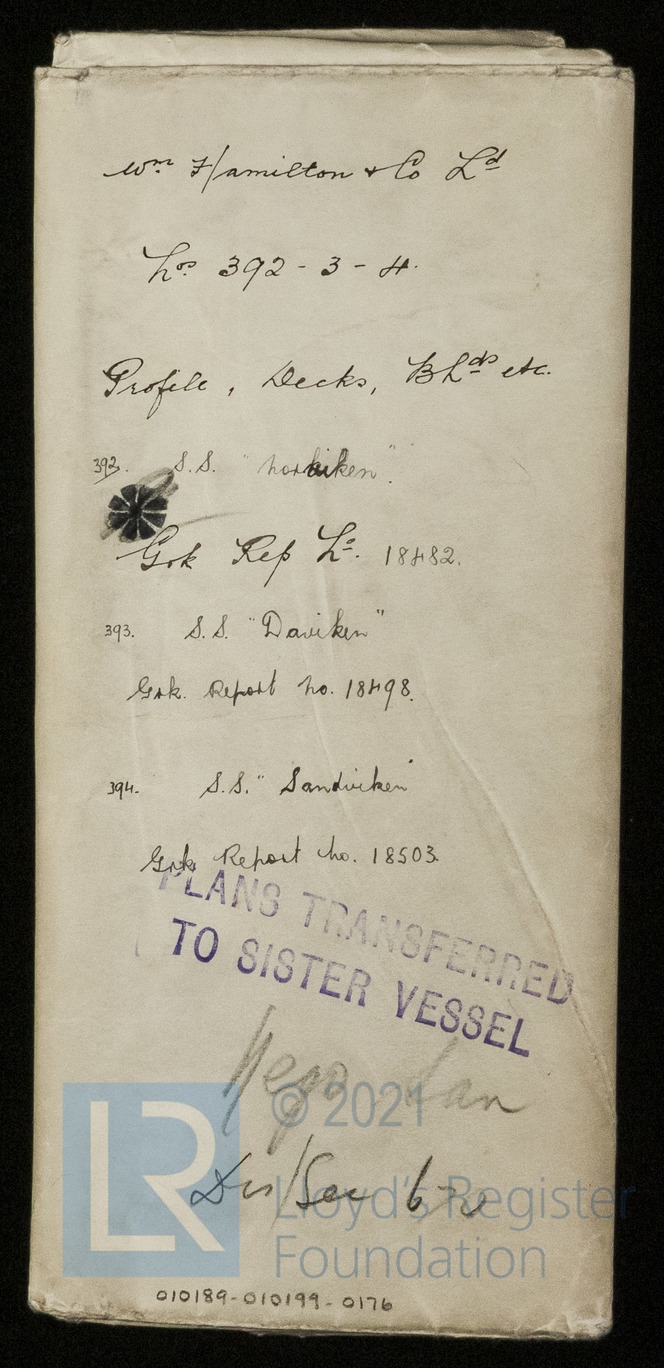 Wm. Hamilton & Co Ld
Nos. 392 - 3 - 4.
Profile, Decks, Bhds etc.
392. S.S. "Norkiken".
Grk Rep No. 18482.
393. S.S. "Daviken"
Grk. Report No. 18498.
394. S.S. "Sandviken"
Grk Report No. 18503.
PLANS TRANSFERRED
TO SISTER VESSEL
LR
© 2021
Lloyd's Register
Foundation
010189-010199-0176